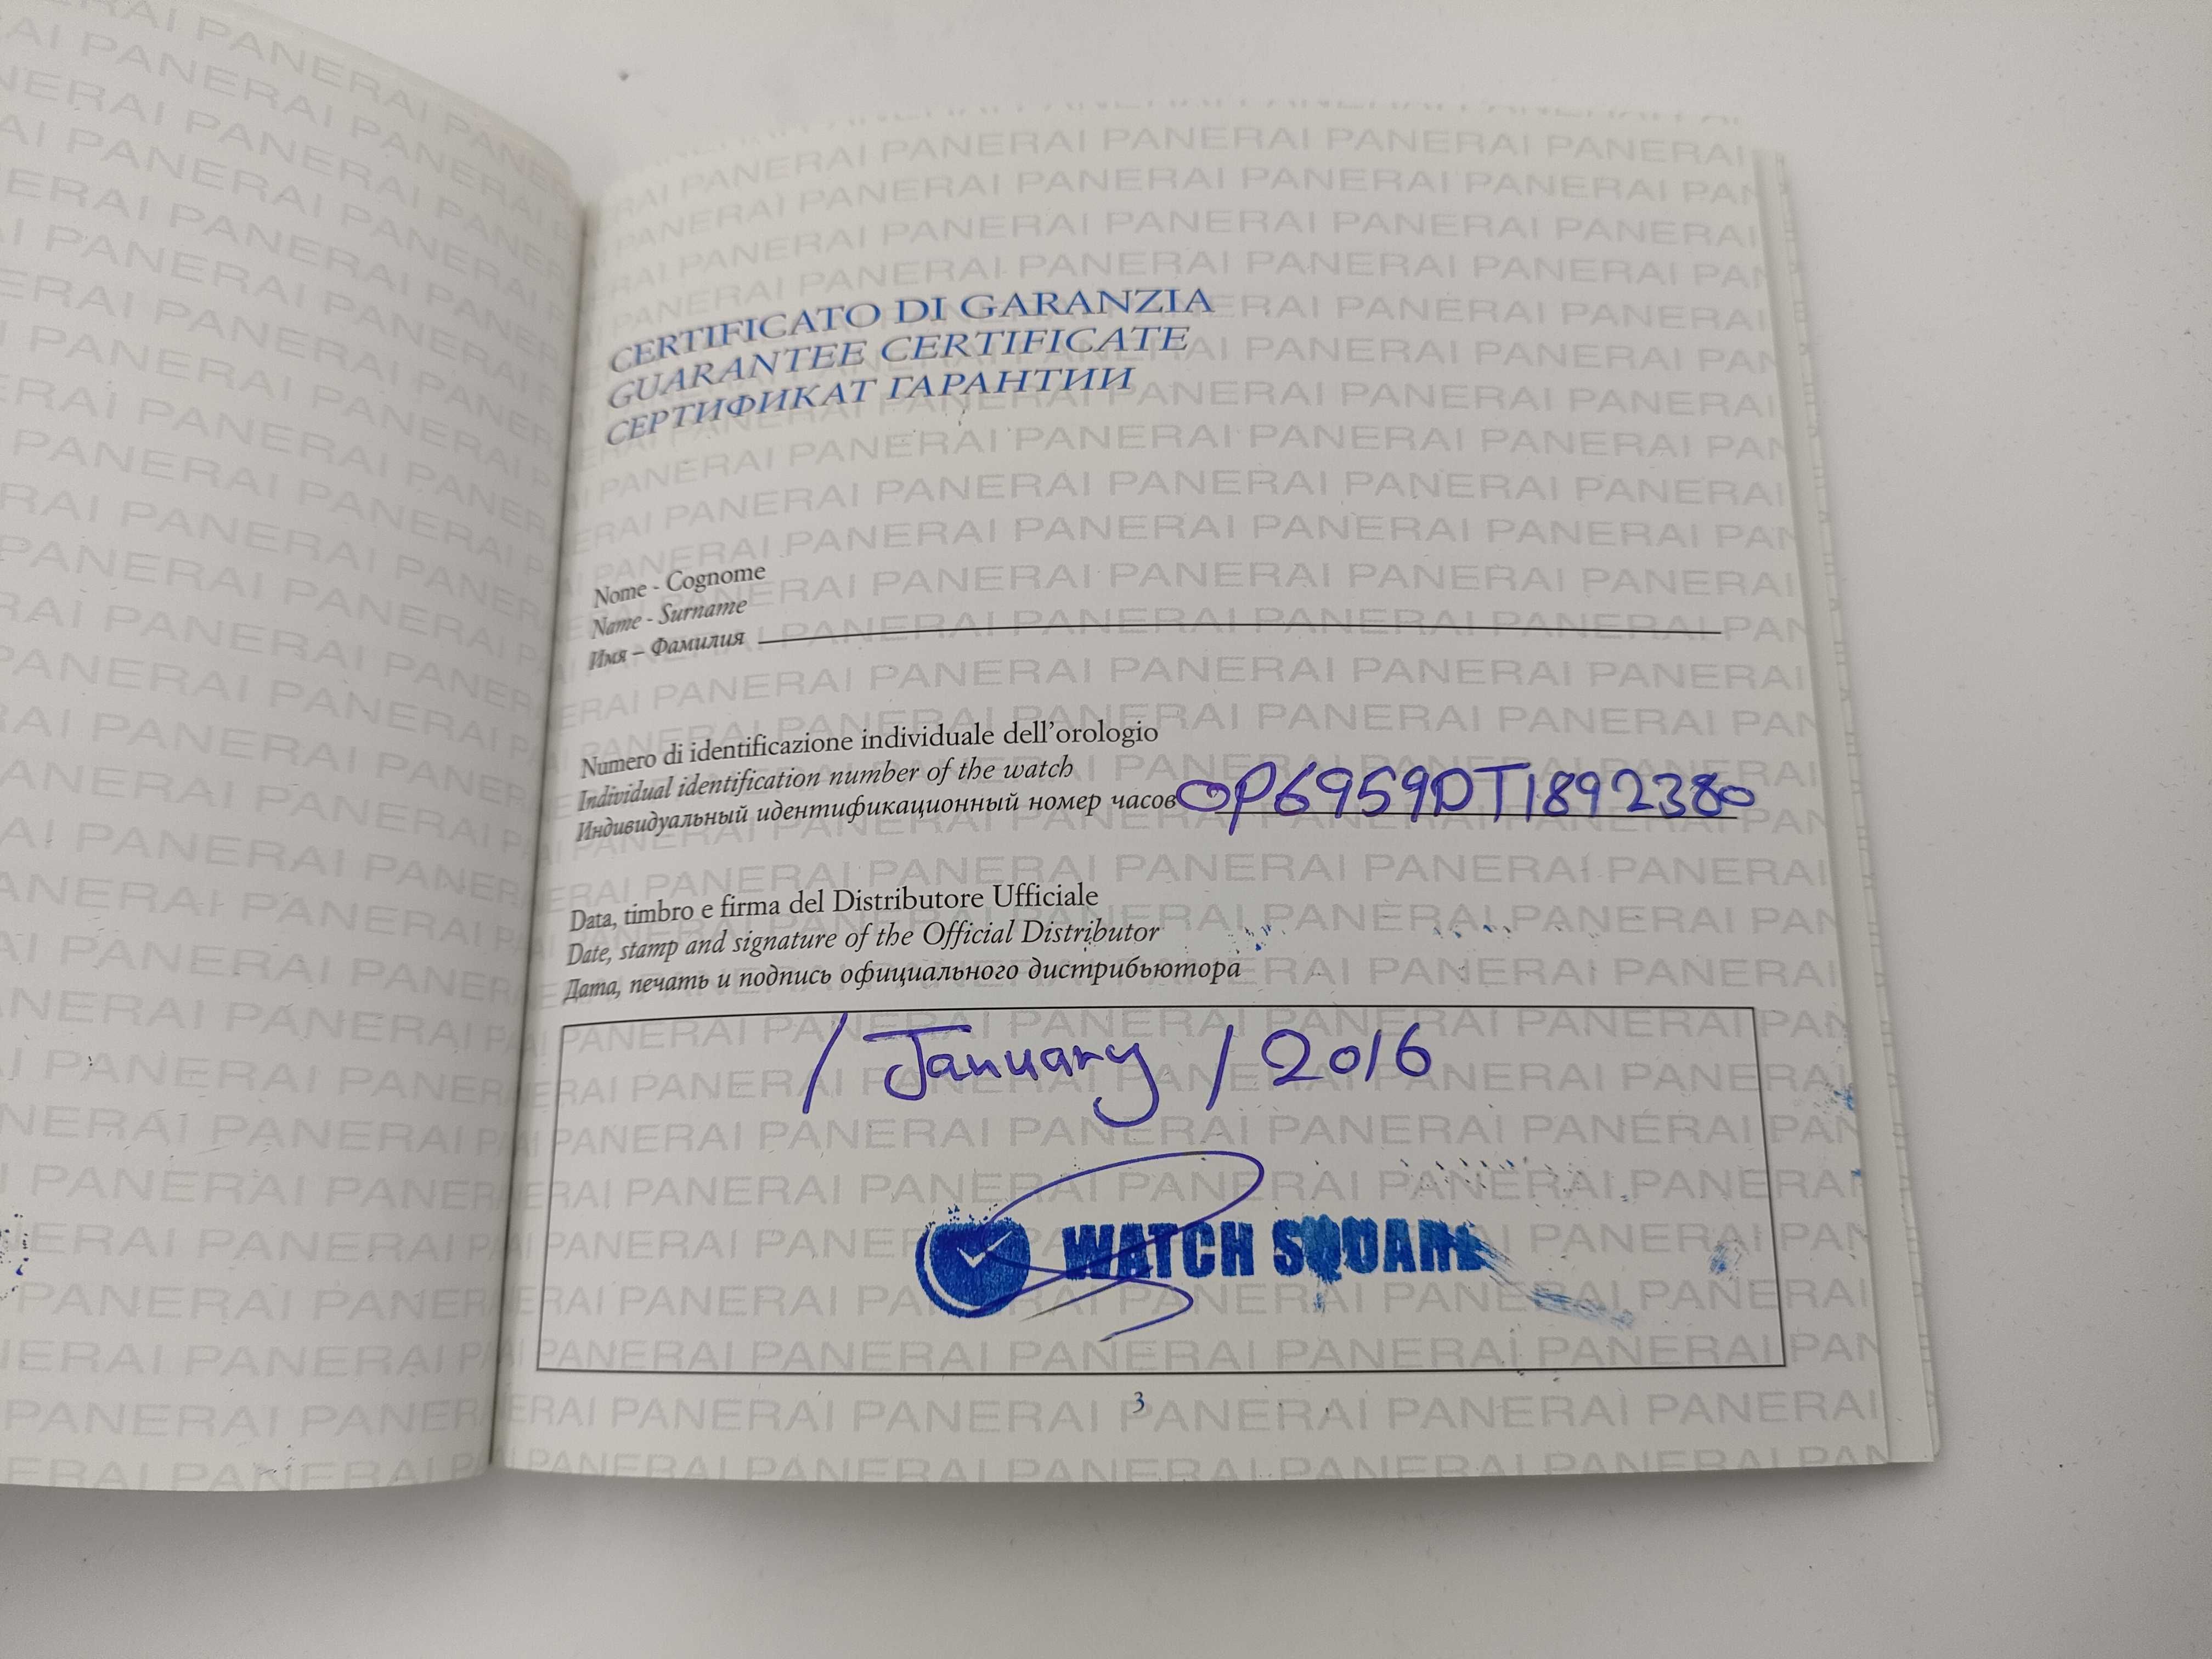 CERTIFICATO DI GARANZIA
GUARANTEE CERTIFICATE
СЕРТИФИКАТ ГАРАНТИИ
Nome - Cognome
Name - Surname
Имя – Фамилия
Numero di identificazione individuale dell'orologio
Individual identification number of the watch
Индивидуальный идентификационный номер часов OP6959DT1892380
Data, timbro e firma del Distributore Ufficiale
Date, stamp and signature of the Official Distributor
Дата, печать и подпись официального дистрибьютора
/ January / 2016
WATCH SQUARE
3